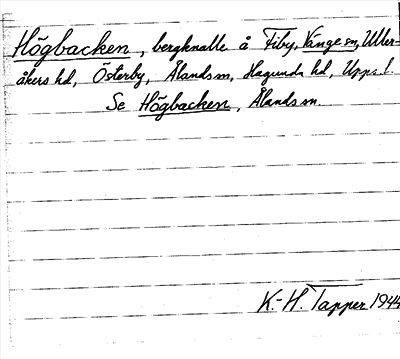 Högbacken, bergknalle å Fiby, Vänge sn, Uller-
åkers hd, Österby, Ålands sn, Hagunda hd, Upps. l.
Se Högbacken, Ålands sn.
K.-H. Tapper 1944